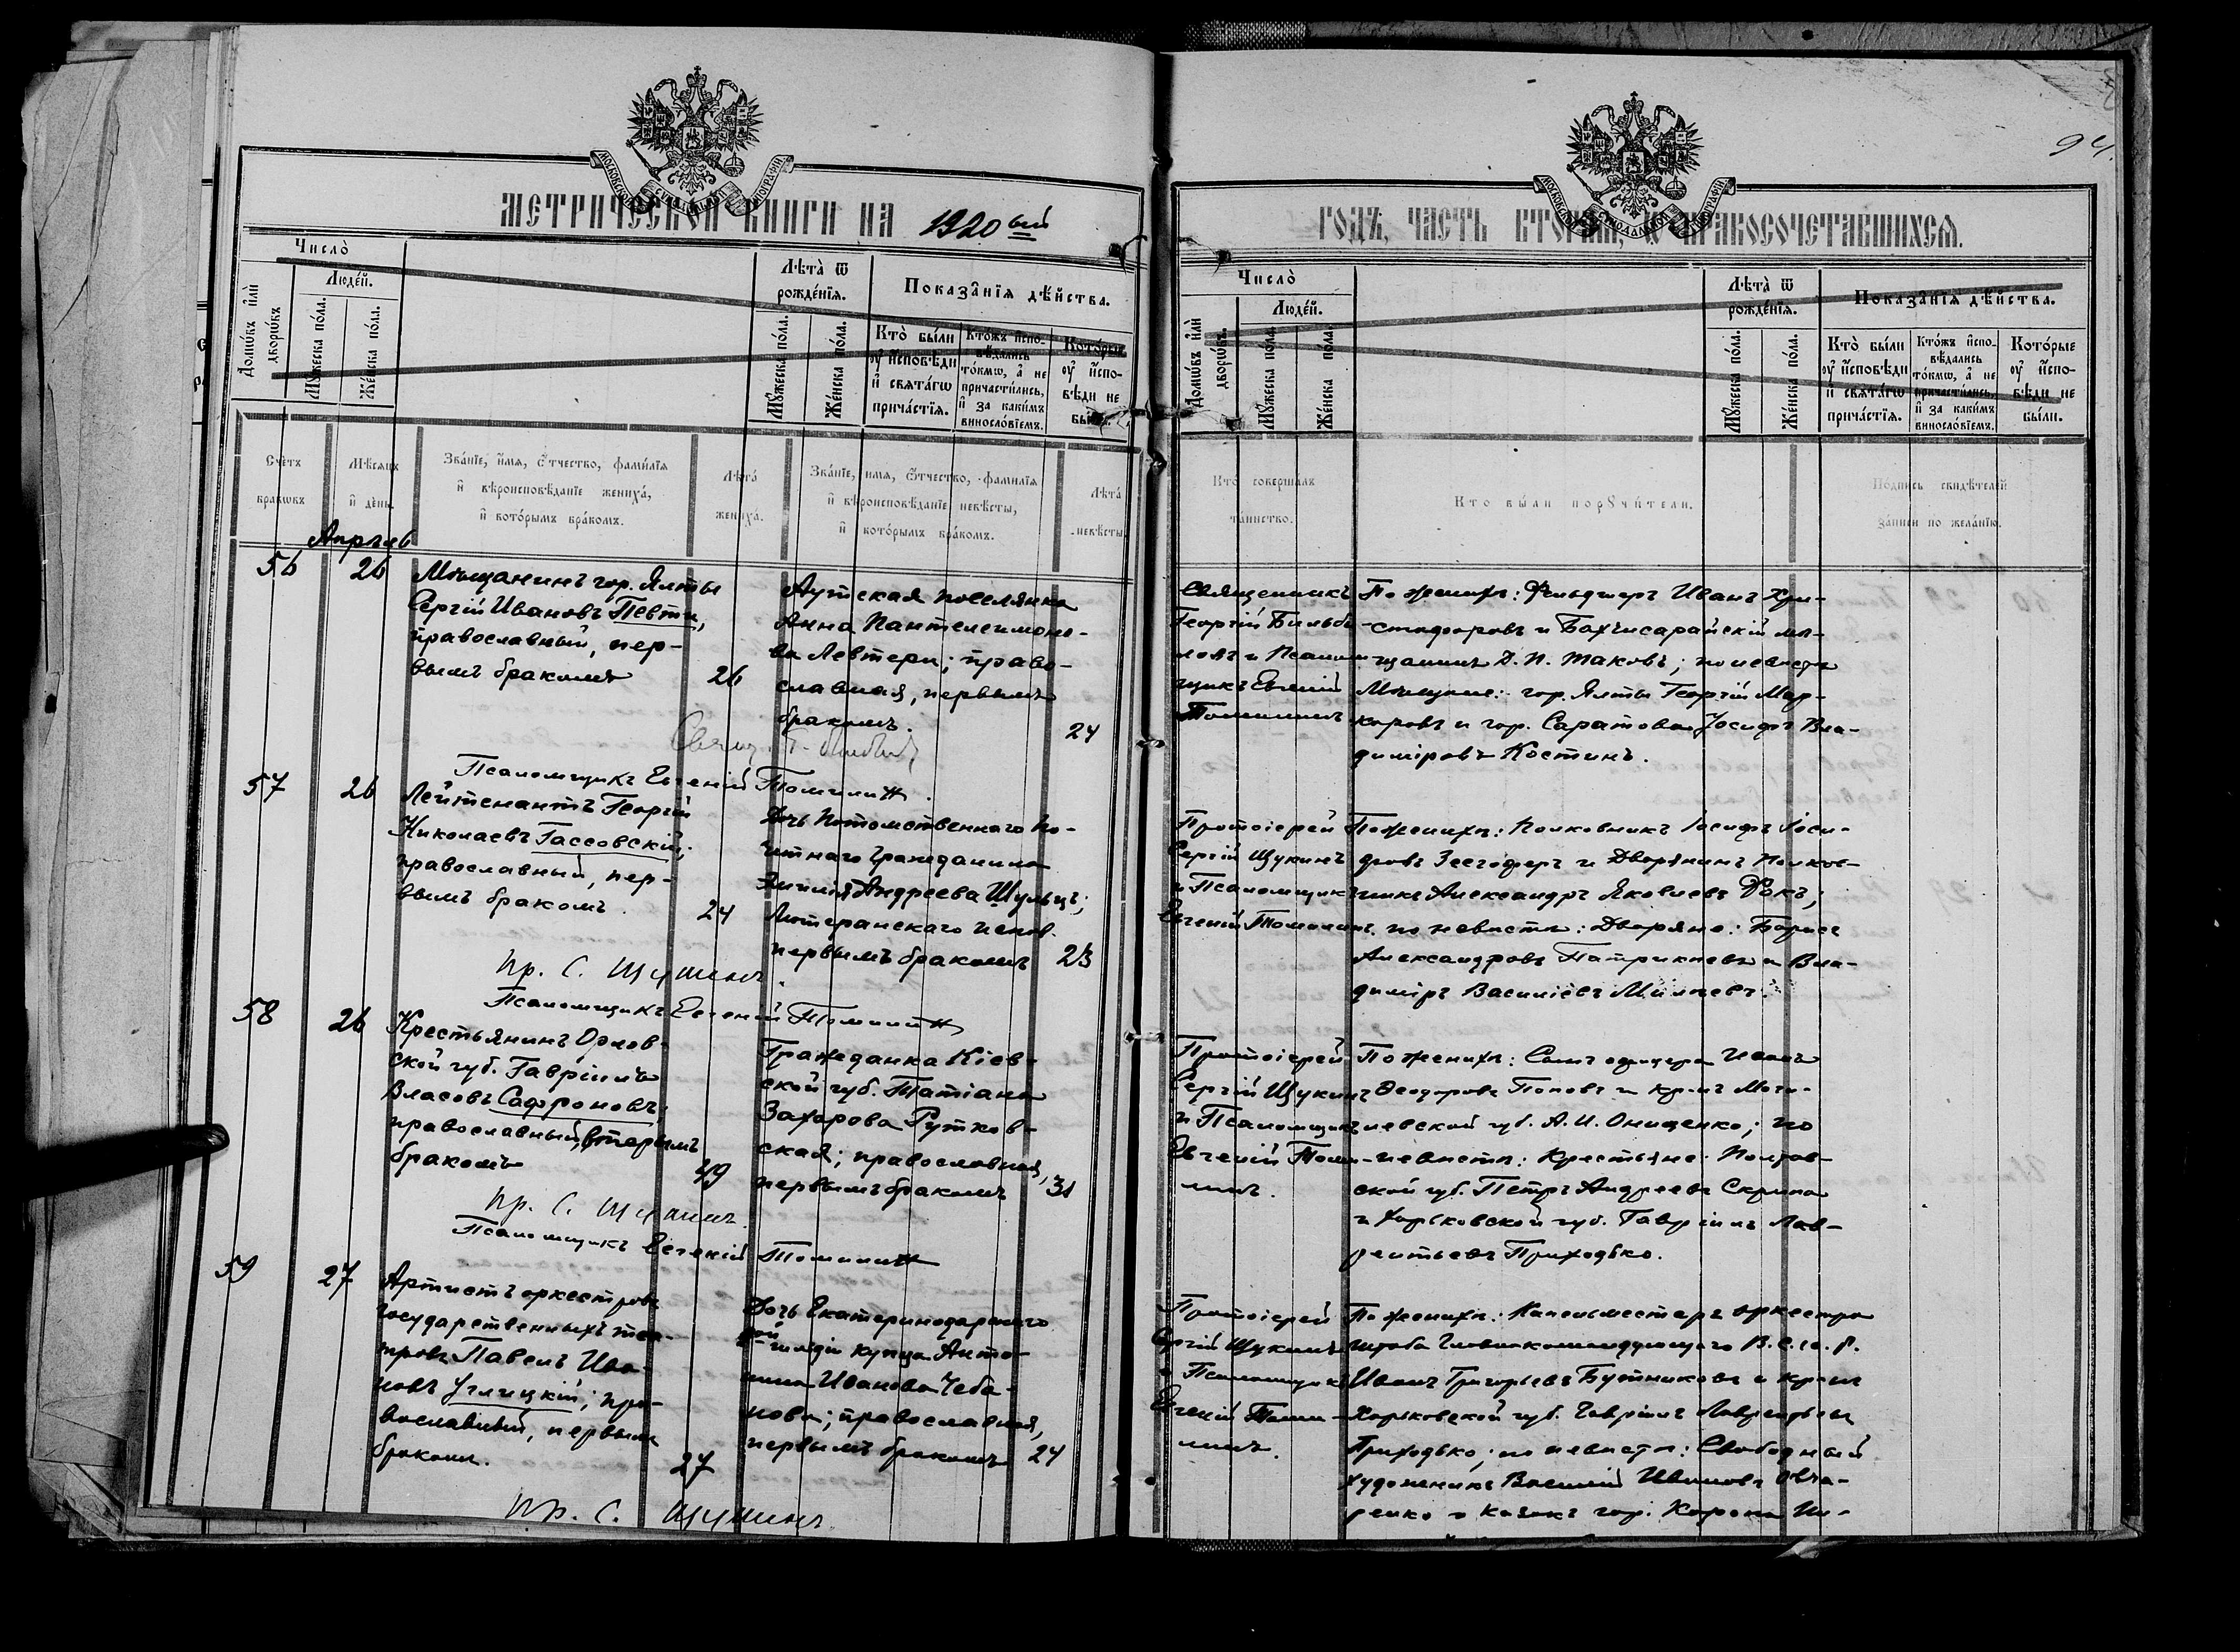 94.
МОСКОВСКОЙ СѴНОДАЛЬНОЙ ТИПОГРАФІИ
МОСКОВСКОЙ СѴНОДАЛЬНОЙ ТИПОГРАФІИ
МЕТРИЧЕСКОЙ КНИГИ НА 1920ый
ГОДЪ, ЧАСТЬ ВТОРАЯ, Ѡ БРАКОСОЧЕТАВШИХСЯ.
Число̀
Домѡ́въ и҆лѝ дворѡ́въ
Люде́й.
Му́жеска по́ла.
Же́нска по́ла.
Лѣта̀ ѿ рожде́нїя.
Му́жеска по́ла.
Же́нска по́ла.
Показа̑нїя дѣ́йства.
Кто̀ бы́ли оу҆ и҆сповѣ́ди и҆ свѧта́гѡ прича́стїя.
Кто́жъ и҆спо-вѣ́дались то́кмѡ, а҆ не причасти́лись, и҆ за каки́мъ винослові́емъ.
Кото́рые оу҆ и҆спо-вѣ́ди не бы́ли.
Число̀
Домѡ́въ и҆лѝ дворѡ́въ.
Люде́й.
Му́жеска по́ла.
Же́нска по́ла.
Лѣта̀ ѿ рожде́нїя.
Му́жеска по́ла.
Же́нска по́ла.
Показа̑нїя дѣ́йства.
Кто̀ бы́ли оу҆ и҆сповѣ́ди и҆ свѧта́гѡ прича́стїя.
Кто́жъ и҆спо-вѣ́дались то́кмѡ, а҆ не причасти́лись, и҆ за каки́мъ винослові́емъ.
Кото́рые оу҆ и҆спо-вѣ́ди не бы́ли.
Сче́тъ бра́кѡвъ
Мѣ́сяцъ и҆ де́нь.
Зва́нїе, и҆́мя, ѻ҆́тчество, фами́лїя
и҆ вѣроисповѣ́данїе жениха́,
и҆ кото́рымъ бра́комъ.
Лѣ́та жениха́.
Зва́нїе, и́мя, ѻ҆́тчество, фами́лїя
и҆ вѣроисповѣ́данїе невѣ́сты,
и҆ кото́рымъ бра́комъ.
Лѣ́та невѣ́сты
Кто̀ соверша́лъ таинство.
Кто бы́ли порꙋчи́тели.
По́дпись свидѣ́телей за́писи по жела́нїю.
Апрѣль
56
26
Мѣщанинъ гор. Ялты
Сергій Ивановъ Певти,
православный, пер-
вымъ бракомъ
26
Аутская поселянка
Анна Пантелеимоно-
ва Левтери; право-
славная, первымъ
бракомъ.
24
Священникъ
Георгій
и Псалом-
щикъ Евгеній
Томилинъ
По женихѣ: Фельдшеръ Иванъ Хри-
стофоровъ и Бахчисарайскій мѣ-
щанинъ Д. П. Таковъ; по невѣстѣ
Мѣщане: гор. Ялты Георгій Мар-
каровъ и гор. Саратова Іосифъ Вла-
диміровъ Костинъ.
Свящ. Г.
Псаломщикъ Евгеній Томилинъ.
57
26
Лейтенантъ Георгій
Николаевъ Гассовскій;
православный, пер-
вымъ бракомъ.
24
Дочь Потомственнаго По-
четнаго Гражданина
Эмилія Андреева Шульцъ;
Лютеранскаго испов.
первымъ бракомъ
23
Протоіерей
Сергій Щукинъ
и Псаломщикъ
Евгеній Томилинъ.
По женихѣ: Полковникъ Іосифъ Іоси-
фовъ Зеегоферъ и Дворянинъ Полков-
никъ Александръ Яковлевъ Фокъ;
по невѣстѣ: Дворяне: Борисъ
Александровъ Патрикѣевъ и Вла-
диміръ Василіевъ Милѣевъ.
Пр. С. Щукинъ.
Псаломщикъ Евгеній Томилинъ
58
26
Крестьянинъ Орлов-
ской губ. Гавріилъ
Власовъ Сафроновъ;
православный, вторымъ
бракомъ
49
Гражданка Кіев-
ской губ. Татіана
Захарова Рутков-
ская; православная,
первымъ бракомъ
31
Протоіерей
Сергій Щукинъ
и Псаломщикъ
Евгеній Томи-
линъ.
По женихѣ: Сынъ офицера Иванъ
Ѳеодоровъ Поповъ и кр-нъ Моги-
левской губ. А. И. Онищенко; по
невѣстѣ: Крестьяне: Полтав-
ской губ. Петръ Андреевъ Скрипа
и Харьковской губ. Гавріилъ Лав-
рентьевъ Приходько.
Пр. С. Щукинъ.
Псаломщикъ Евгеній Томилинъ
59
27
Артистъ оркестровъ
Государственныхъ теа-
тровъ Павелъ Ива-
новъ Углицкій; пра-
вославный, первымъ
бракомъ.
27
Дочь Екатеринодарскаго
гильдіи купца Анто-
нина Иванова Чеба-
нова; православная,
первымъ бракомъ
24
Протоіерей
Сергій Щукинъ
и Псаломщикъ
Евгеній Томи-
линъ.
По женихѣ: Капельмейстеръ оркестра
штаба Главнокомандующаго В. С. Ю. Р.
Иванъ Григорьевъ Бутниковъ и кр-нъ
Харьковской губ. Гавріилъ Лаврентьевъ
Приходько; по невѣстѣ: Свободный
художникъ Василій Ивановъ Овча-
ренко и казакъ гор. Корона
Пр. С. Щукинъ